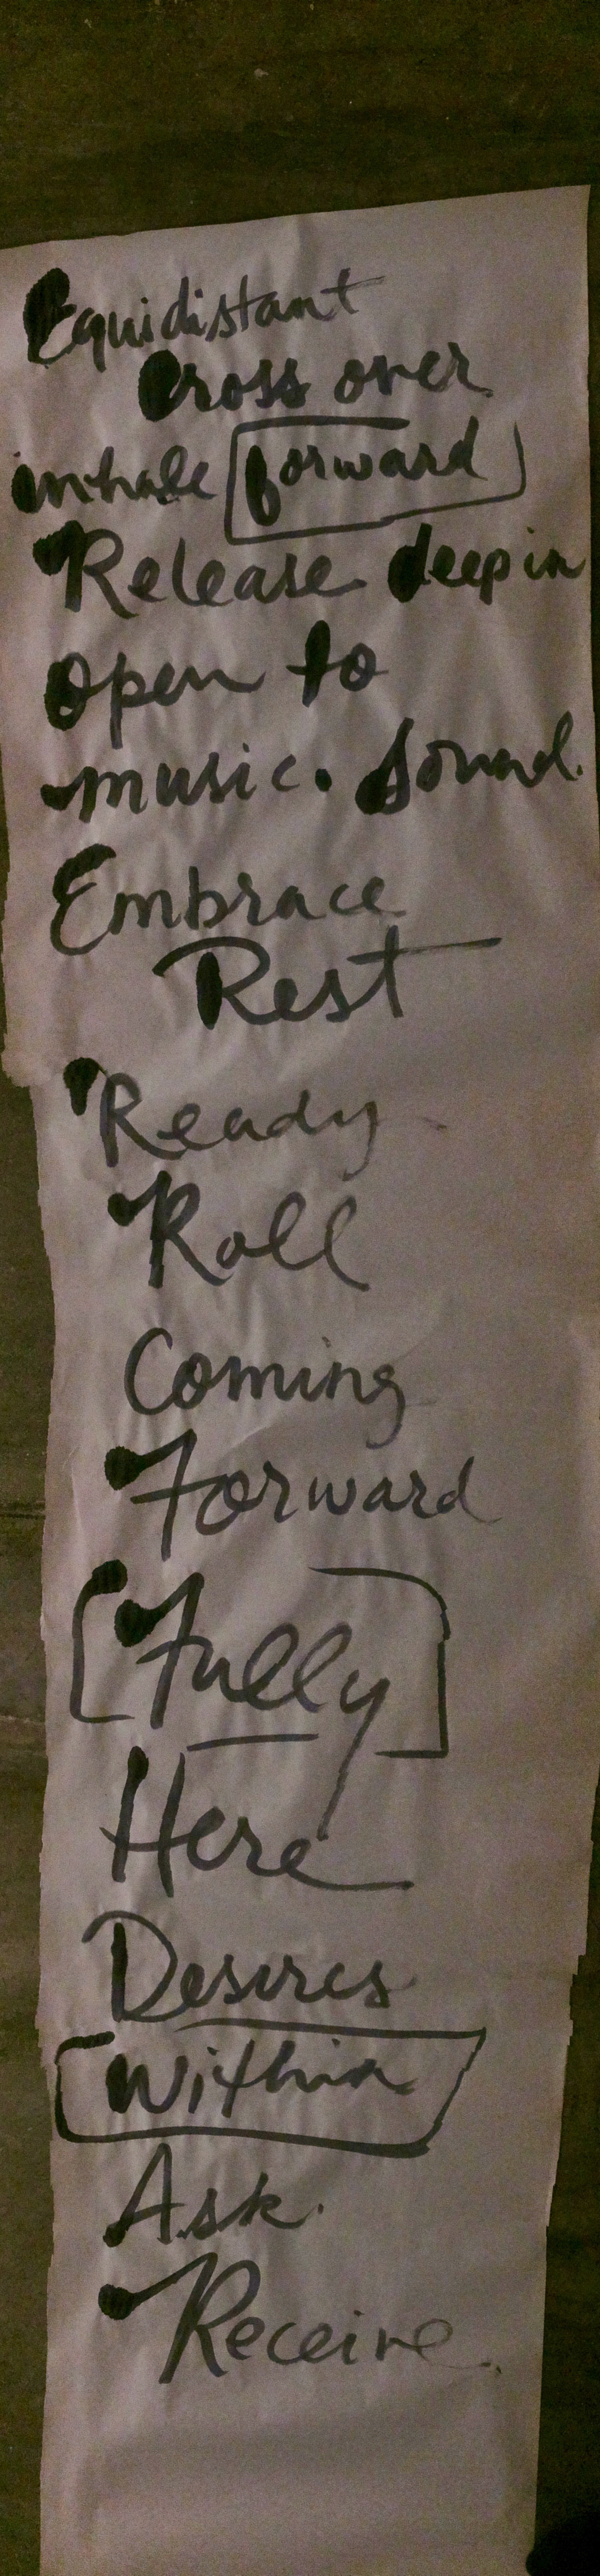 Equidistant
Cross over
inhale forward
Release deep in
open to
music. Sound.
Embrace
Rest
Ready
Roll
Coming
Forward
Fully
Here
Desires
Within
Ask.
Receive.